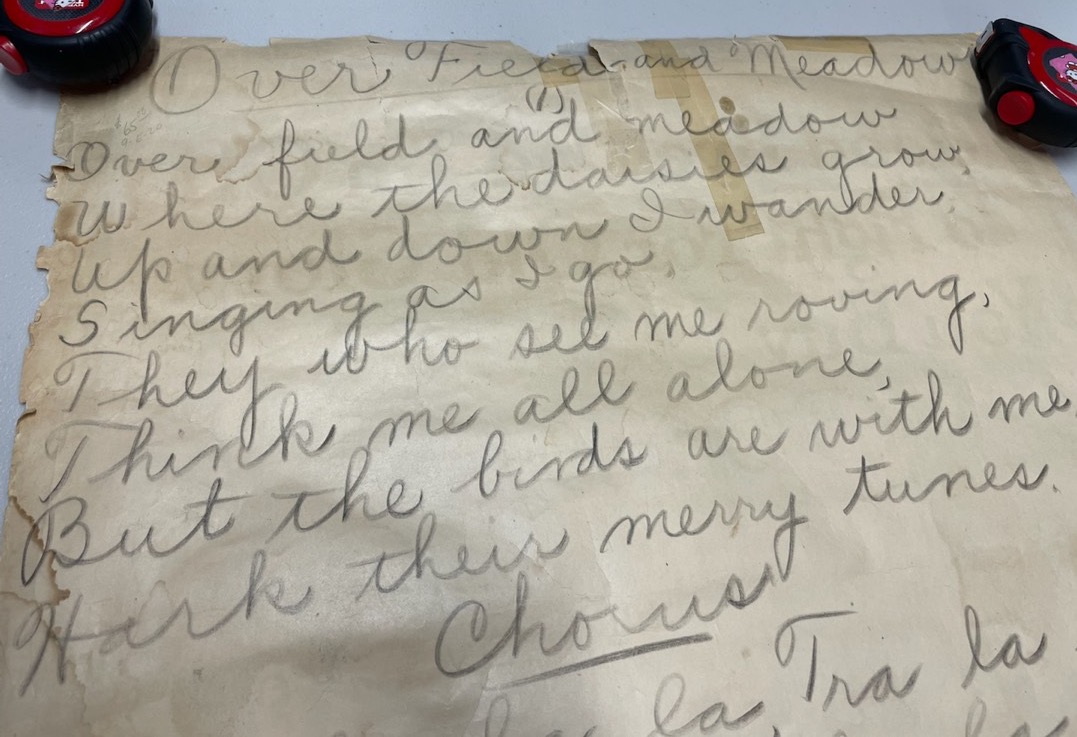 Over Field and Meadow
(1)
Over field and meadow
Where the daisies grow,
Up and down I wander,
Singing as I go.
They who see me roving,
Think me all alone,
But the birds are with me,
Hark their merry tunes.
Chorus
la, Tra la